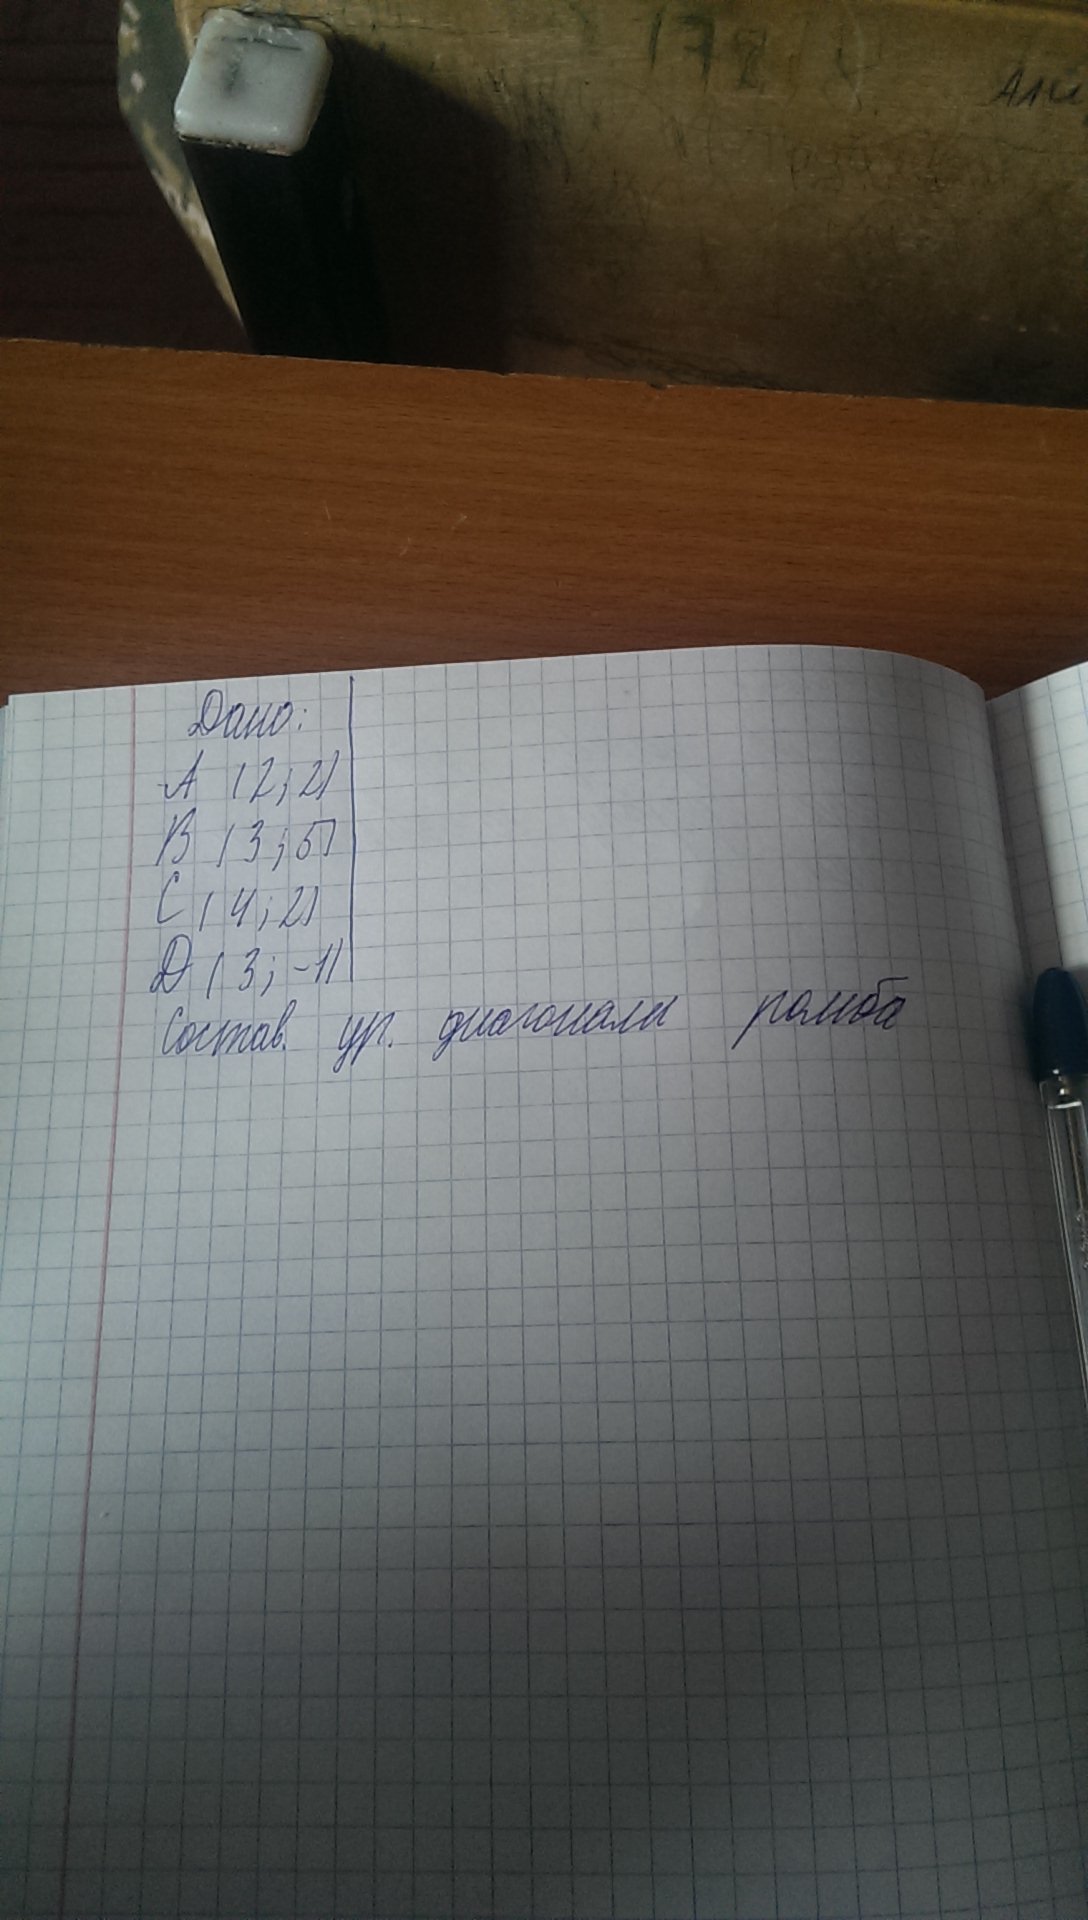 178
Али
Дано:
A (2; 2)
B (3; 5)
C (4; 2)
D (3; -1)
Состав. ур. диагонали ромба